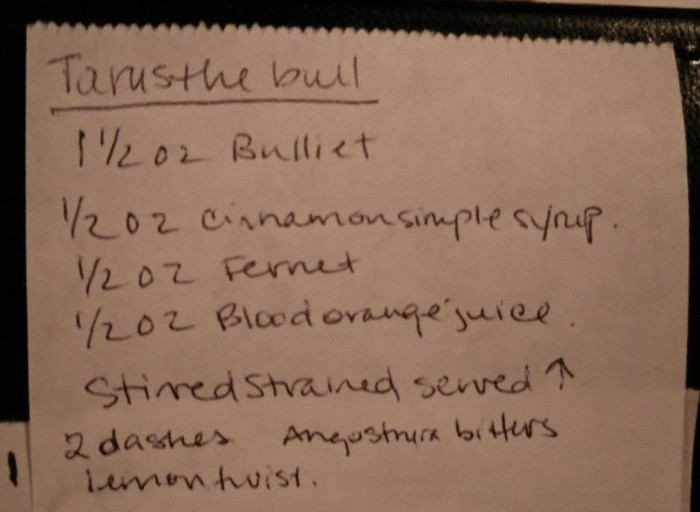 Tarus the bull
1 1/2 oz Bulliet
1/2 oz cinnamon simple syrup.
1/2 oz Fernet
1/2 oz Blood orange juice.
Stirred Strained served ↑
2 dashes Angostura bitters
lemon twist.